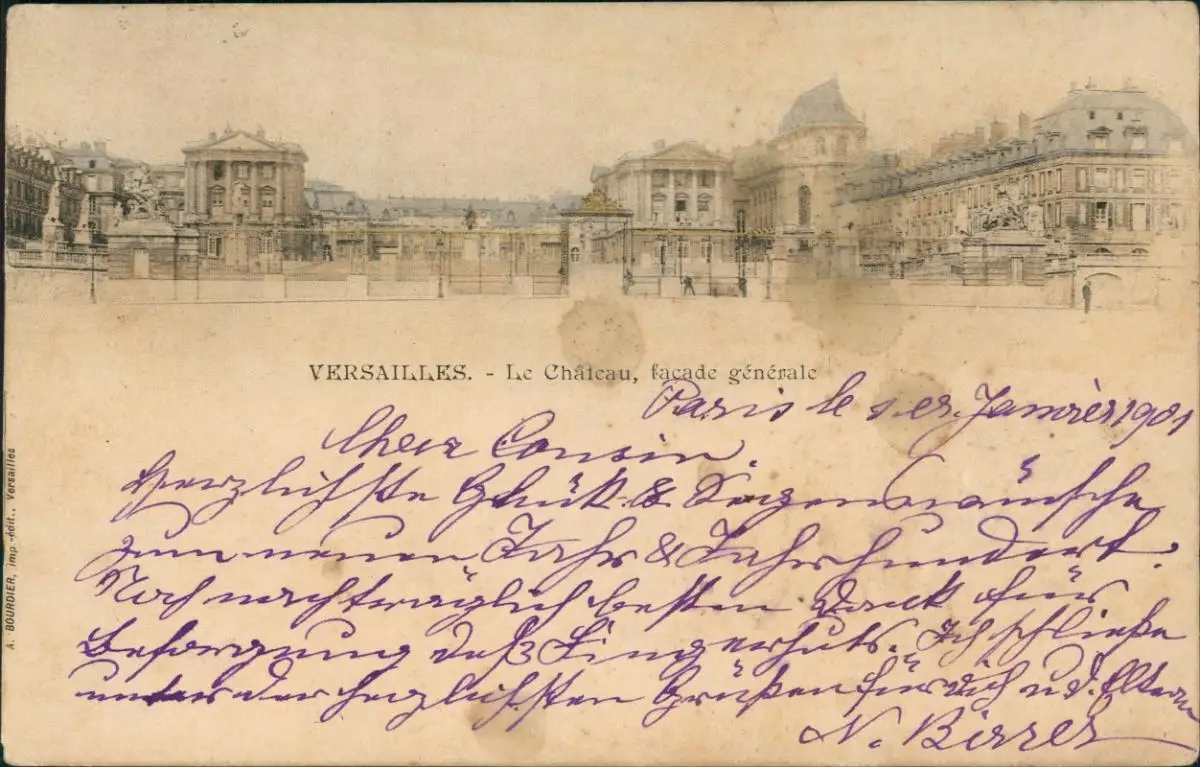 VERSAILLES. - Le Château, façade générale
Paris le 1 er. Janvier 1901
Cher Cousin.
Herzlichste Glück & Segenswünsche
zum neuen Jahr & Jahrhundert.
Noch nachträglich besten Dank für
Besorgung deß Fingerhuts. Ich schließe
unter der herzlichsten Grüßen für dich u d. Eltern
N. Birrer
A. BOURDIER, imp.-édit., Versailles